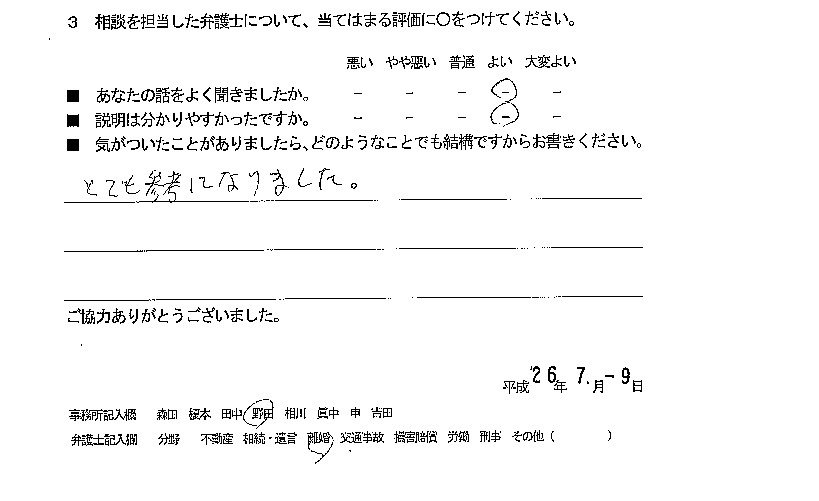 3 相談を担当した弁護士について、当てはまる評価に〇をつけてください。
悪い やや悪い 普通 よい 大変よい
■ あなたの話をよく聞きましたか。 － － － － －
■ 説明は分かりやすかったですか。 － － － － －
■ 気がついたことがありましたら、どのようなことでも結構ですからお書きください。
とても参考になりました。
ご協力ありがとうございました。
平成 26年 7.月－9日
事務所記入欄 森田 榎本 田中 野田 相川 眞中 申 吉田
弁護士記入欄 分野 不動産 相続・遺言 離婚 交通事故 損害賠償 労働 刑事 その他（ ）